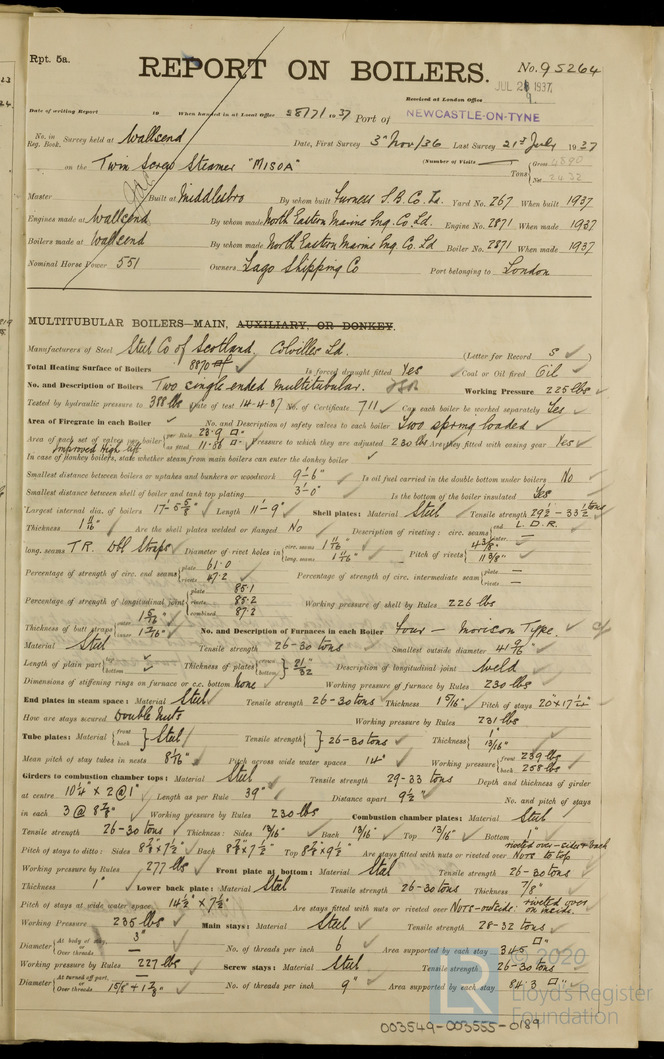 Rpt. 5a.
REPORT ON BOILERS.
No. 95264
JUL 28 1937
Received at London Office
Date of writing Report 19 When handed in at Local Office 28/7/1937 Port of NEWCASTLE-ON-TYNE
No. in Reg. Book. Survey held at Wallsend Date, First Survey 3rd Nov/36 Last Survey 21st July 1937
on the Twin Screw Steamer "MISOA" (Number of Visits ) Tons { Gross 4890 Net 2432
Master Built at Middlesbro By whom built Furness S.B. Co. Ld. Yard No. 267 When built 1937
Engines made at Wallsend By whom made North Eastern Marine Eng. Co. Ld. Engine No. 2871 When made 1937
Boilers made at Wallsend By whom made North Eastern Marine Eng. Co. Ld Boiler No. 2871 When made 1937
Nominal Horse Power 551 Owners Lago Shipping Co Port belonging to London
MULTITUBULAR BOILERS—MAIN, AUXILIARY, OR DONKEY.
Manufacturers of Steel Steel Co of Scotland, Colvilles Ld. (Letter for Record S)
Total Heating Surface of Boilers 8870 Is forced draught fitted Yes Coal or Oil fired Oil
No. and Description of Boilers Two single ended multitubular. Working Pressure 225 lbs
Tested by hydraulic pressure to 388 lbs Date of test 14-4-37 No. of Certificate 711 Can each boiler be worked separately Yes
Area of Firegrate in each Boiler No. and Description of safety valves to each boiler Two spring loaded
Area of each set of valves per boiler { per Rule 23.9 □" as fitted Pressure to which they are adjusted 230 lbs Are they fitted with easing gear Yes
Improved High lift
In case of donkey boilers, state whether steam from main boilers can enter the donkey boiler
Smallest distance between boilers or uptakes and bunkers or woodwork 9'-6" Is oil fuel carried in the double bottom under boilers No
Smallest distance between shell of boiler and tank top plating 3'-0" Is the bottom of the boiler insulated Yes
Largest internal dia. of boilers 17'-5 5/8" Length 11'-9" Shell plates: Material Steel Tensile strength 29½-33½ tons
Thickness 1 11/16" Are the shell plates welded or flanged No Description of riveting: circ. seams { end L.D.R. inter. —
long. seams T.R. Dbl Straps Diameter of rivet holes in { circ. seams 1 11/16" long. seams 1 11/16" Pitch of rivets { 4 3/8" 11 3/8"
Percentage of strength of circ. end seams { plate 61.0 rivets 47.2 Percentage of strength of circ. intermediate seam { plate — rivets —
Percentage of strength of longitudinal joint { plate 85.1 rivets 88.2 combined 87.2 Working pressure of shell by Rules 226 lbs
Thickness of butt straps { outer 1 5/16" inner 1 7/16" No. and Description of Furnaces in each Boiler Four — Morison Type.
Material Steel Tensile strength 26-30 tons Smallest outside diameter 41 9/16"
Length of plain part { top bottom Thickness of plates { crown bottom } 21/32" Description of longitudinal joint Weld
Dimensions of stiffening rings on furnace or c.c. bottom None Working pressure of furnace by Rules 230 lbs
End plates in steam space: Material Steel Tensile strength 26-30 tons Thickness 1 9/16" Pitch of stays 20" x 17½"
How are stays secured Double Nuts Working pressure by Rules 231 lbs
Tube plates: Material { front back } Steel Tensile strength { } 26-30 tons Thickness { 1" 13/16"
Mean pitch of stay tubes in nests 8 1/16" Pitch across wide water spaces 14" Working pressure { front 239 lbs back 258 lbs
Girders to combustion chamber tops: Material Steel Tensile strength 29-33 tons Depth and thickness of girder
at centre 10¼" x 2 @ 1" Length as per Rule 39" Distance apart 9½" No. and pitch of stays
in each 3 @ 8 7/8" Working pressure by Rules 230 lbs Combustion chamber plates: Material Steel
Tensile strength 26-30 tons Thickness: Sides 13/16" Back 13/16" Top 13/16" Bottom 1"
Pitch of stays to ditto: Sides 8 7/8" x 7½" Back 8 7/8" x 7½" Top 8 7/8" x 9½" Are stays fitted with nuts or riveted over riveted over-sides & back Nuts to top
Working pressure by Rules 277 lbs Front plate at bottom: Material Steel Tensile strength 26-30 tons
Thickness 1" Lower back plate: Material Steel Tensile strength 26-30 tons Thickness 7/8"
Pitch of stays at wide water space 14½" x 7½" Are stays fitted with nuts or riveted over Nuts-outside: riveted over on inside.
Working Pressure 235 lbs Main stays: Material Steel Tensile strength 28-32 tons
Diameter { At body of stay, or Over threads 3" No. of threads per inch 6 Area supported by each stay 345 □"
Working pressure by Rules 227 lbs Screw stays: Material Steel Tensile strength 26-30 tons
Diameter { At turned off part, or Over threads — 1 5/8" + 1 7/8" No. of threads per inch 9" Area supported by each stay 84.3 □"
© 2020
LR
Lloyd's Register
Foundation
003549-003555-0189